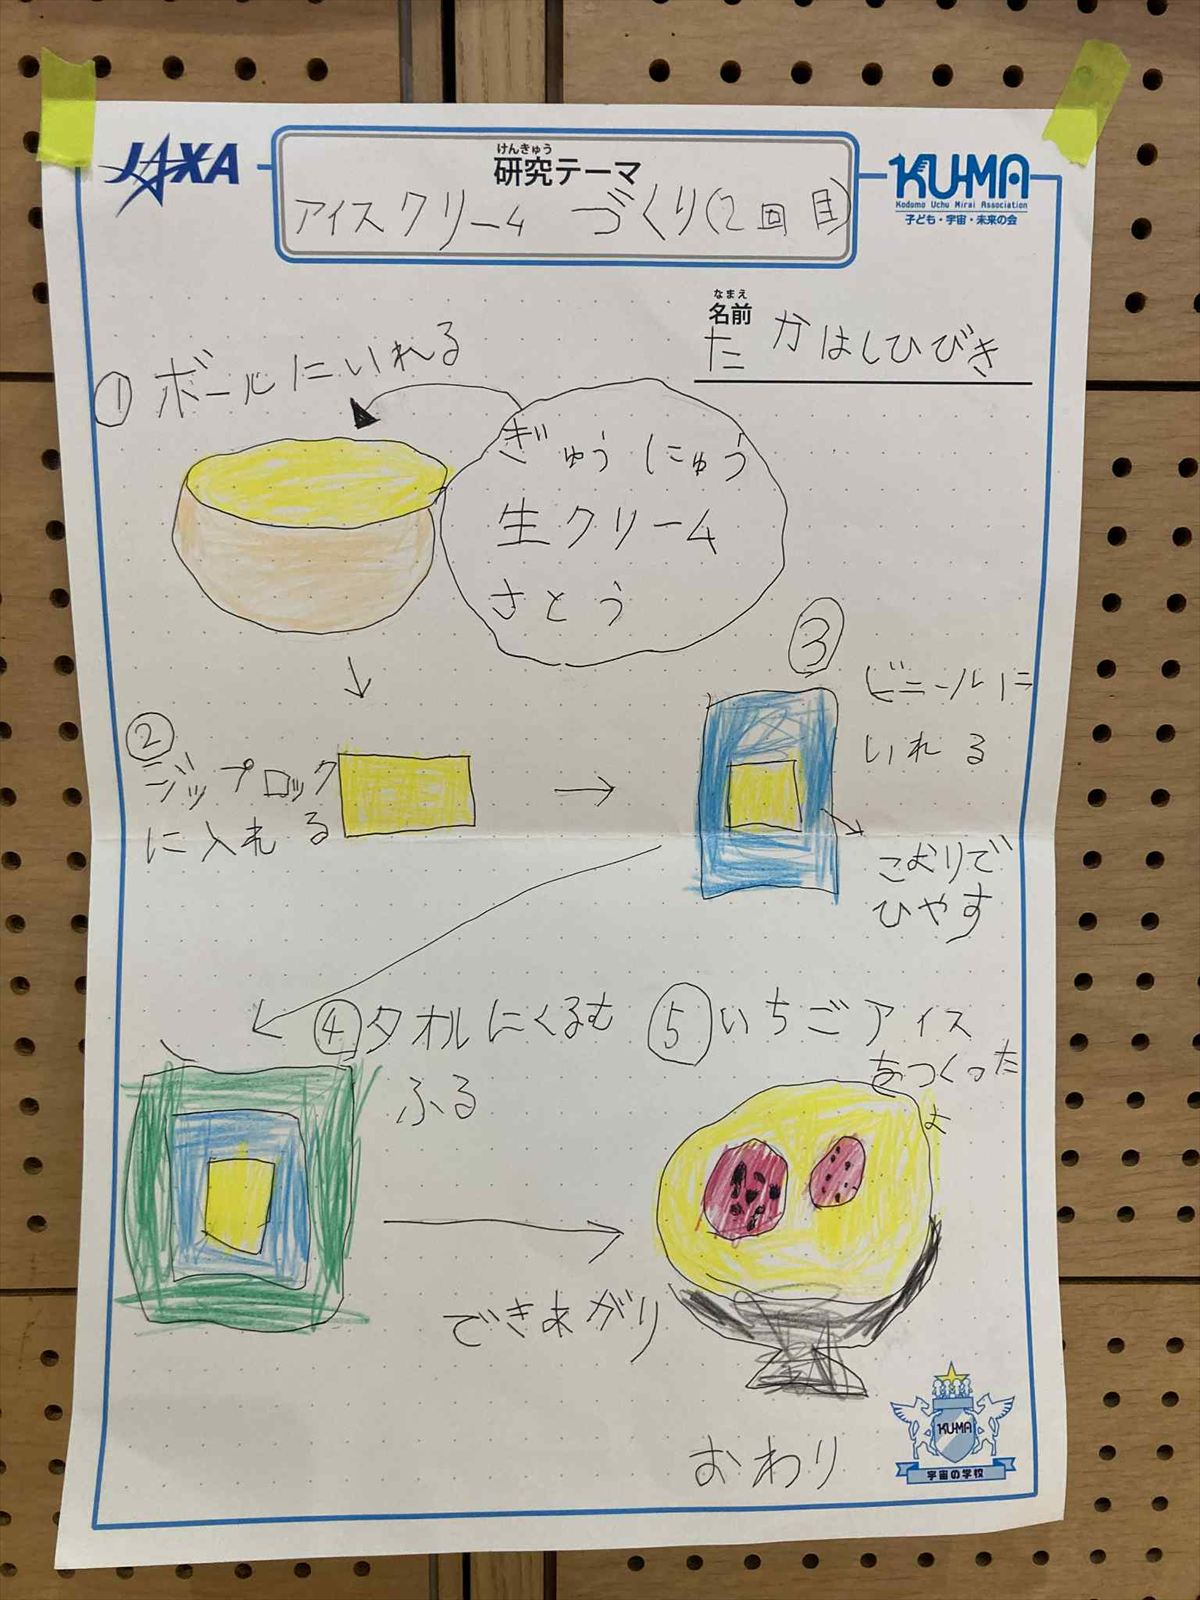 JAXA
けんきゅう
研究テーマ
KU-MA
Kodomo Uchu Mirai Association
子ども・宇宙・未来の会
アイスクリーム づくり(2回目)
なまえ
名前
たかはしひびき
① ボールにいれる
ぎゅうにゅう
生クリーム
さとう
②
ジップロック
に入れる
③
ビニールに
いれる
こおりで
ひやす
④タオルにくるむ
ふる
⑤いちごアイス
をつくった
よ
できあがり
おわり
KU-MA
宇宙の学校